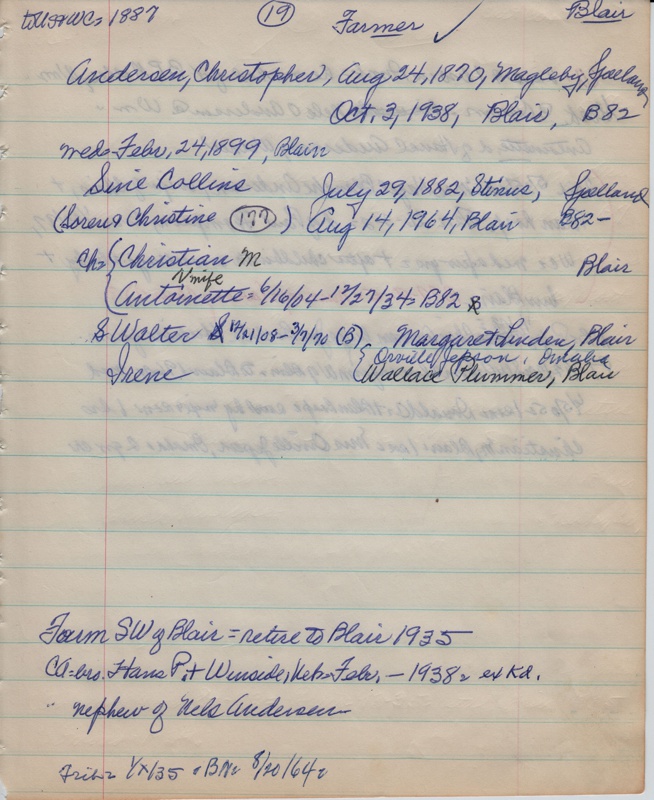 to US & WC= 1887 (19) Farmer ✓ Blair
Andersen, Christopher, Aug 24, 1870, Magleby, Sjelland
Oct. 3, 1938, Blair, B82
wed= Febr, 24, 1899, Blair
Sine Collins July 29, 1882, Stinus, Sjelland
(Soren & Christine (177)) Aug 14, 1964, Blair B82-
Ch= { Christian M Blair
Antoinette = 6/16/04 - 12/27/34= B82
S Walter 12/21/08 - 3/7/70 (B) Margaret Linden, Blair
Irene { Orville Jepson, Omaha
Wallace Plummer, Blair
Farm SW of Blair = retire to Blair 1935
CA= bro. Hans P. + Winside, Neb= Febr, - 1938=
" nephew of Nels Andersen
Trib= 1/x/35 BN= 8/20/64=